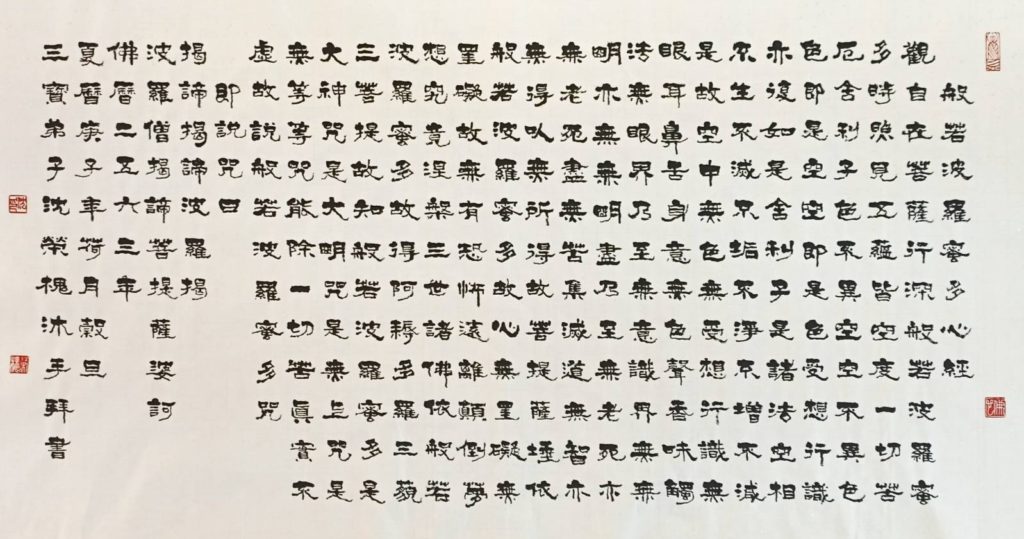 般若波羅蜜多心經
觀自在菩薩行深般若波羅蜜
多時照見五蘊皆空度一切苦
厄舍利子色不異空空不異色
色即是空空即是色受想行識
亦復如是舍利子是諸法空相
不生不滅不垢不淨不增不減
是故空中無色無受想行識無
眼耳鼻舌身意無色聲香味觸
法無眼界乃至無意識界無無
明亦無無明盡乃至無老死亦
無老死盡無苦集滅道無智亦
無得以無所得故菩提薩埵依
般若波羅蜜多故心無罣礙無
罣礙故無有恐怖遠離顛倒夢
想究竟涅槃三世諸佛依般若
波羅蜜多故得阿耨多羅三藐
三菩提故知般若波羅蜜多是
大神咒是大明咒是無上咒是
無等等咒能除一切苦真實不
虛故說般若波羅蜜多咒
即說咒曰
揭諦揭諦波羅揭
波羅僧揭諦菩提薩婆訶
佛曆二五六三年
夏曆庚子年荷月穀旦
三寶弟子沈榮槐沐手拜書